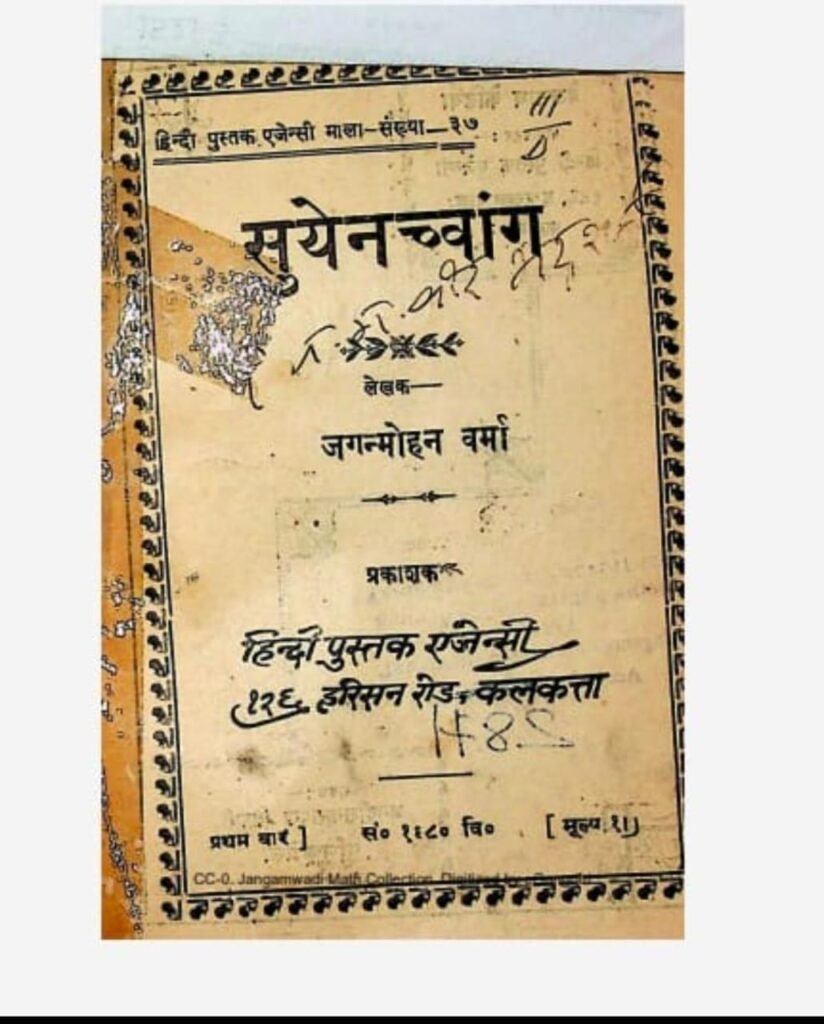 हिन्दी पुस्तक एजेन्सी माला-संख्या—३७
III
D
सुयेनच्वांग
लेखक—
जगन्मोहन वर्मा
प्रकाशक
हिन्दी पुस्तक एजेन्सी
१२६, हरिसन रोड, कलकत्ता
प्रथम वार ]  सं० १९८० वि०  [ मूल्य १।)
CC-0. Jangamwadi Math Collection. Digitized by